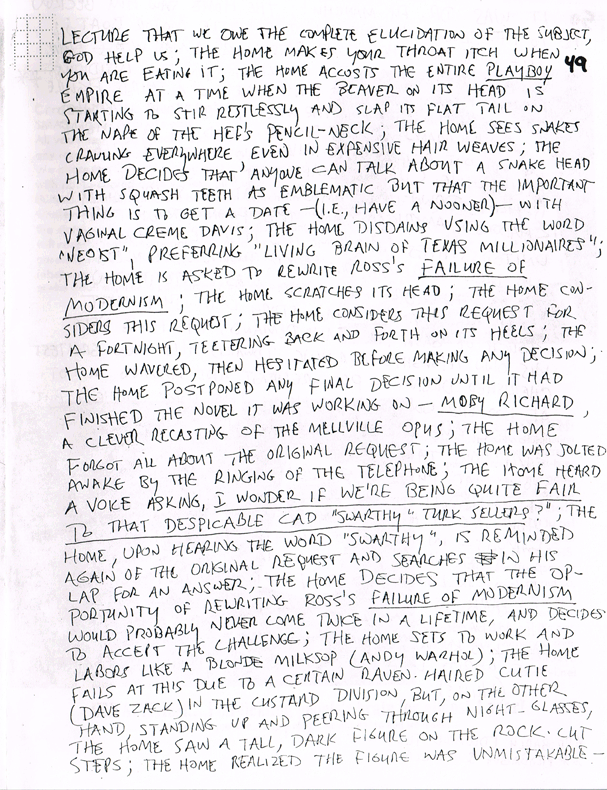 LECTURE THAT WE OWE THE COMPLETE ELUCIDATION OF THE SUBJECT,
GOD HELP US; THE HOME MAKES YOUR THROAT ITCH WHEN
YOU ARE EATING IT; THE HOME ACCOSTS THE ENTIRE PLAYBOY
49
EMPIRE AT A TIME WHEN THE BEAVER ON ITS HEAD IS
STARTING TO STIR RESTLESSLY AND SLAP ITS FLAT TAIL ON
THE NAPE OF THE HEF'S PENCIL-NECK; THE HOME SEES SNAKES
CRAWLING EVERYWHERE, EVEN IN EXPENSIVE HAIR WEAVES; THE
HOME DECIDES THAT ANYONE CAN TALK ABOUT A SNAKE HEAD
WITH SQUASH TEETH AS EMBLEMATIC BUT THAT THE IMPORTANT
THING IS TO GET A DATE —(I.E., HAVE A NOONER)— WITH
VAGINAL CREME DAVIS; THE HOME DISDAINS USING THE WORD
"NEOIST", PREFERRING "LIVING BRAIN OF TEXAS MILLIONAIRES";
THE HOME IS ASKED TO REWRITE ROSS'S FAILURE OF
MODERNISM; THE HOME SCRATCHES ITS HEAD; THE HOME CON-
SIDERS THIS REQUEST; THE HOME CONSIDERS THIS REQUEST FOR
A FORTNIGHT, TEETERING BACK AND FORTH ON ITS HEELS; THE
HOME WAVERED, THEN HESITATED BEFORE MAKING ANY DECISION;
THE HOME POSTPONED ANY FINAL DECISION UNTIL IT HAD
FINISHED THE NOVEL IT WAS WORKING ON — MOBY RICHARD,
A CLEVER RECASTING OF THE MELLVILLE OPUS; THE HOME
FORGOT ALL ABOUT THE ORIGINAL REQUEST; THE HOME WAS JOLTED
AWAKE BY THE RINGING OF THE TELEPHONE; THE HOME HEARD
A VOICE ASKING, I WONDER IF WE'RE BEING QUITE FAIR
TO THAT DESPICABLE CAD "SWARTHY" TURK SELLERS?"; THE
HOME, UPON HEARING THE WORD "SWARTHY", IS REMINDED
AGAIN OF THE ORIGINAL REQUEST AND SEARCHES IN HIS
LAP FOR AN ANSWER; THE HOME DECIDES THAT THE OP-
PORTUNITY OF REWRITING ROSS'S FAILURE OF MODERNISM
WOULD PROBABLY NEVER COME TWICE IN A LIFETIME, AND DECIDES
TO ACCEPT THE CHALLENGE; THE HOME SETS TO WORK AND
LABORS LIKE A BLONDE MILKSOP (ANDY WARHOL); THE HOME
FAILS AT THIS DUE TO A CERTAIN RAVEN-HAIRED CUTIE
(DAVE ZACK) IN THE CUSTARD DIVISION, BUT, ON THE OTHER
HAND, STANDING UP AND PEERING THROUGH NIGHT-GLASSES,
THE HOME SAW A TALL, DARK FIGURE ON THE ROCK-CUT
STEPS; THE HOME REALIZED THE FIGURE WAS UNMISTAKABLE—